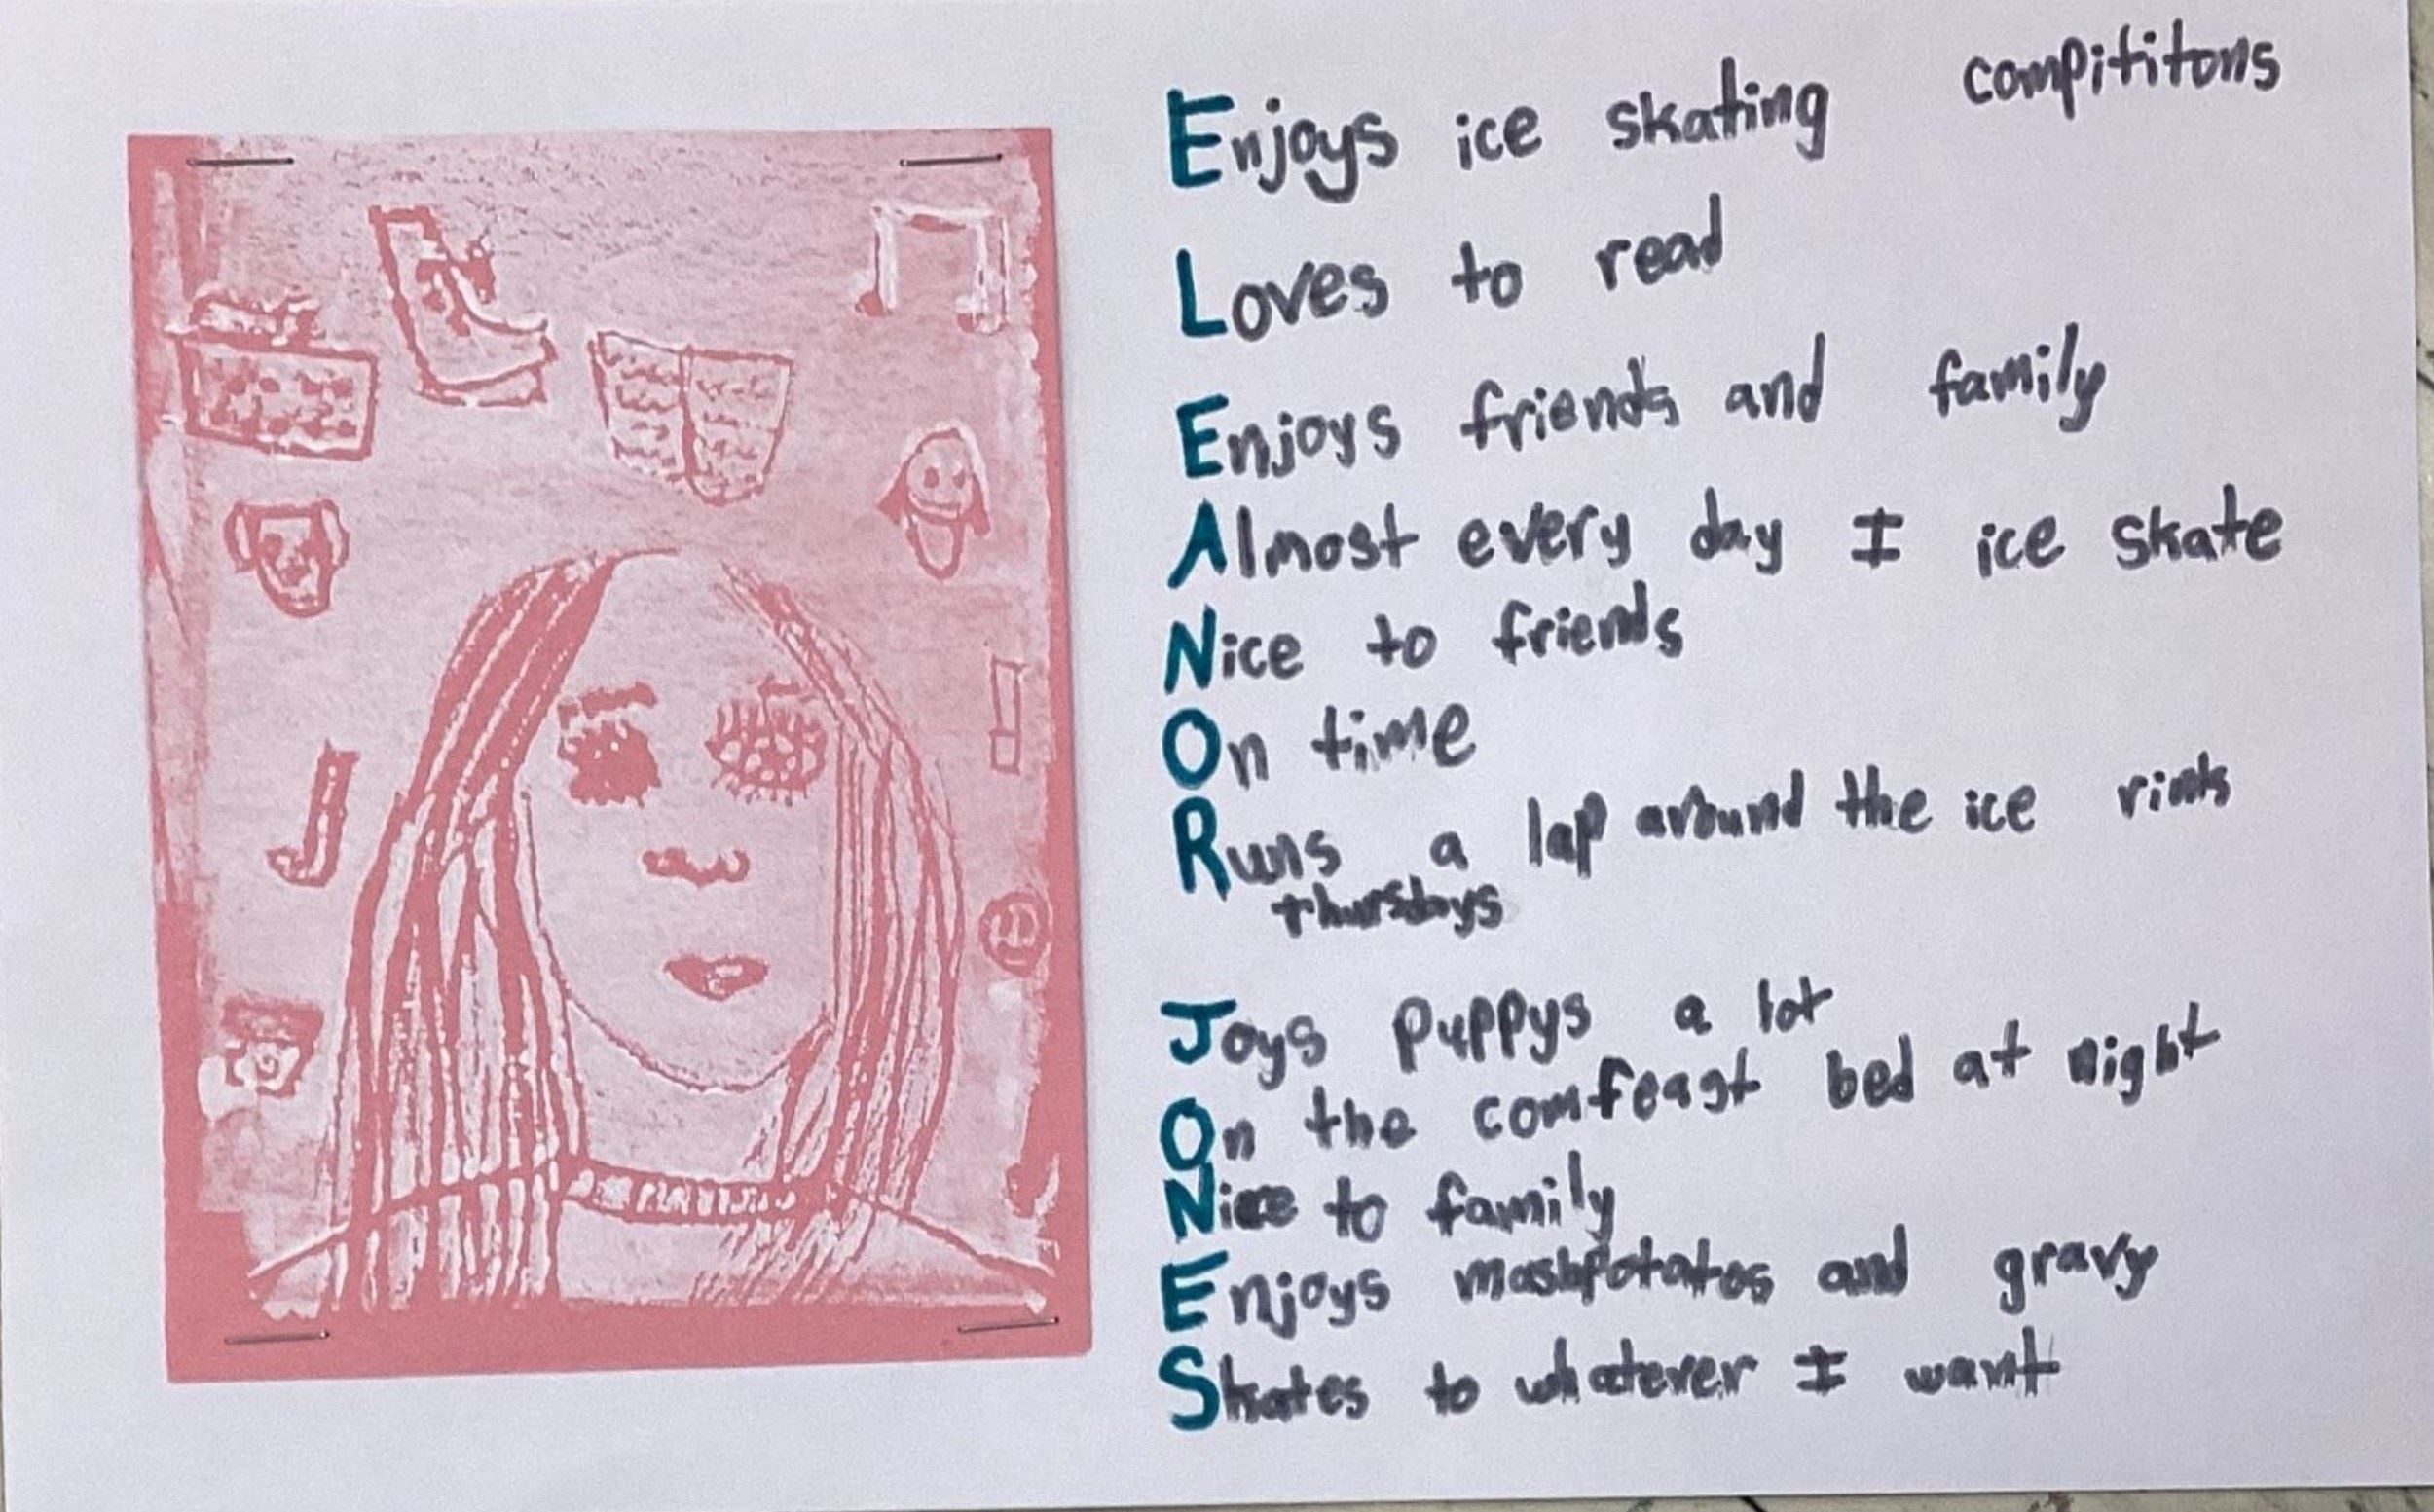 Enjoys ice skating compititons
Loves to read
Enjoys friends and family
Almost every day I ice skate
Nice to friends
On time
Runs a lap around the ice rinks
thursdays
Joys puppys a lot
On the comfeast bed at night
Nice to family
Enjoys mashpotatos and gravy
Skates to whatever I want